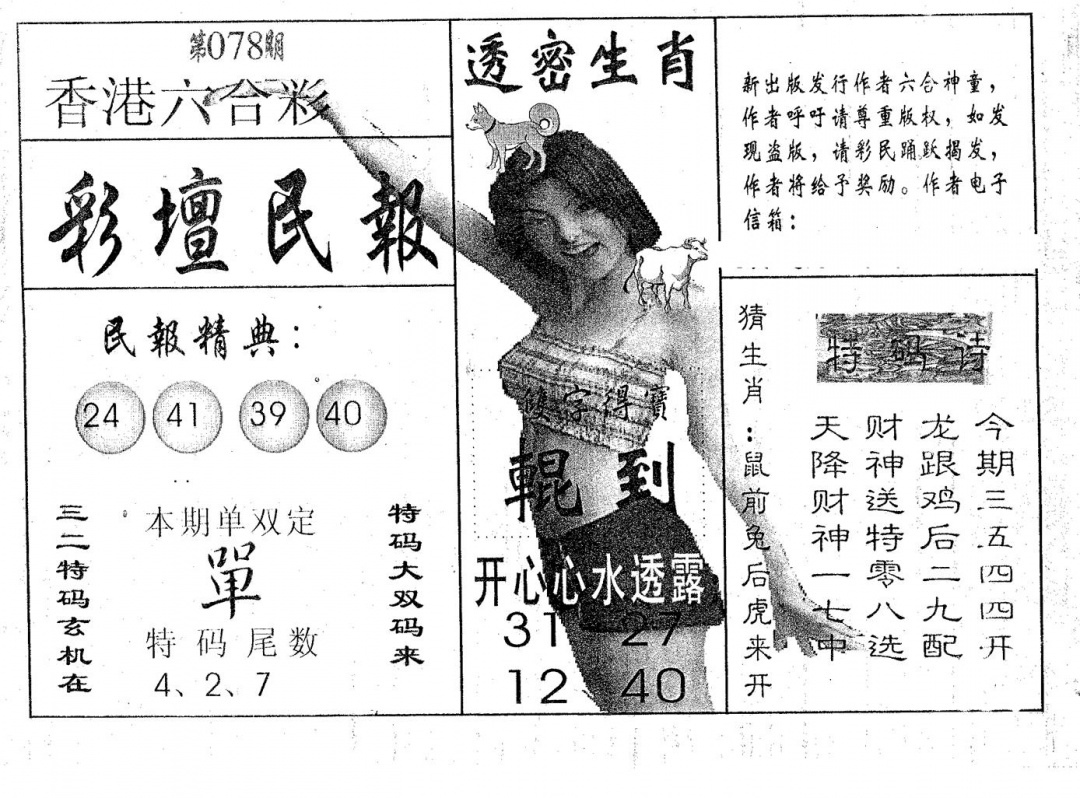 第078期
香港六合彩
彩壇民報
民報精典：
24 41 39 40
三二特码玄机在
本期单双定
單
特码尾数
4、2、7
特码大双码来
透密生肖
雙字得寶
輥到
开心心水透露
31 27
12 40
新出版发行作者六合神童，
作者呼吁请尊重版权，如发
现盗版，请彩民踊跃揭发，
作者将给予奖励。作者电子
信箱：
猜生肖：鼠前兔后虎来开
特码诗
今期三五四四开
龙跟鸡后二九配
财神送特零八选
天降财神一七中